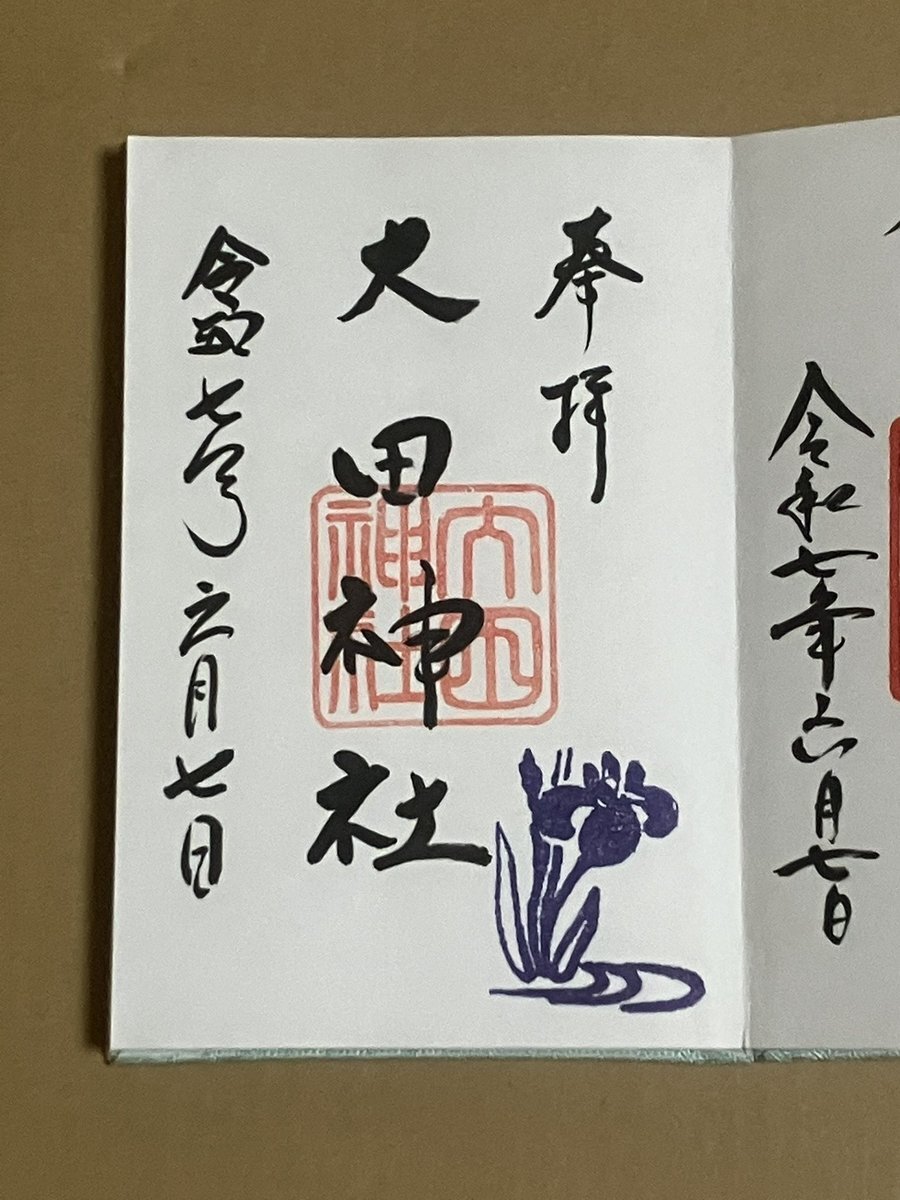 令和七年六月七日
奉拝
大田神社
大田
神社
令和七年六月七日